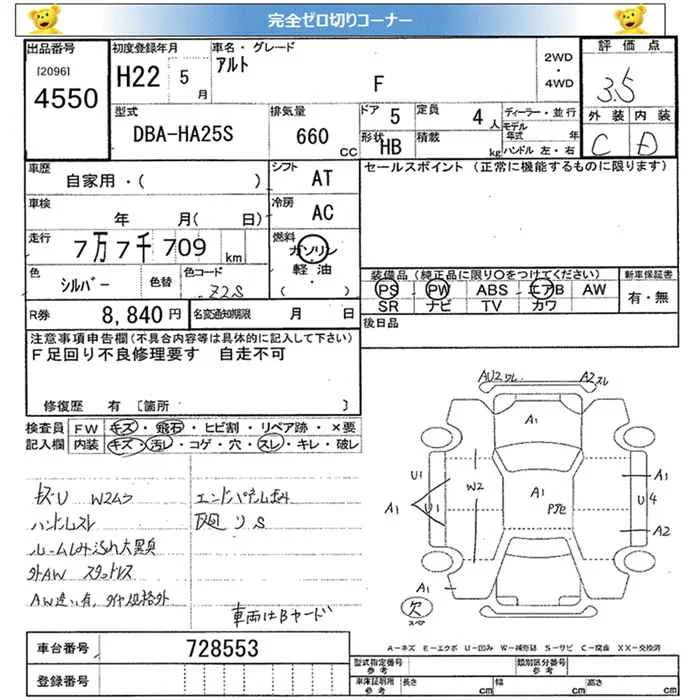 完全ゼロ切りコーナー
出品番号
[2096]
4550
初度登録年月
H22 5 月
車名・グレード
アルト
F
2WD
・
4WD
評価点
3.5
外装 内装
C D
型式
DBA-HA25S
排気量
660 CC
ドア 5
定員 4 人
形状 HB
積載 kg
ディーラー・並行
モデル年式 年
ハンドル 左・右
車歴
自家用・( )
シフト AT
車検
年 月( 日)
冷房 AC
走行
7万7千709 km
燃料
ガソリン
軽油
( )
色
シルバー
色替
色コード
Z2S
R券 8,840円
名変通知期限 月 日
セールスポイント(正常に機能するものに限ります)
装備品(純正品に限り〇をつけてください)
PS PW ABS エアB AW
SR ナビ TV カワ
新車保証書
有・無
後日品
注意事項申告欄(不具合内容等は具体的に記入して下さい)
F足回り不良修理要す 自走不可
修復歴 有 [箇所 ]
検査員 FW キズ・飛石・ヒビ割・リペア跡・×要
記入欄 内装 キズ・汚レ・コゲ・穴・スレ・キレ・破レ
キズU W2ムラ
ハンドルスレ
ルームしみ汚れ大黒臭
外AW スタットレス
AW違い有、タイヤ規格外
車両はBヤード
AU2ワレ
A2スレ
A1
A1
P飛
U1
A1
U1
W2
A1
U4
A2
A1
欠
スペア
A-キズ E-エクボ U-凹み W-補修跡 S-サビ C-腐食 XX-交換済
車台番号 728553
登録番号
型式指定番号
参考
類別区分番号
参考
車庫証明用
参考
長さ cm 幅 cm 高さ cm